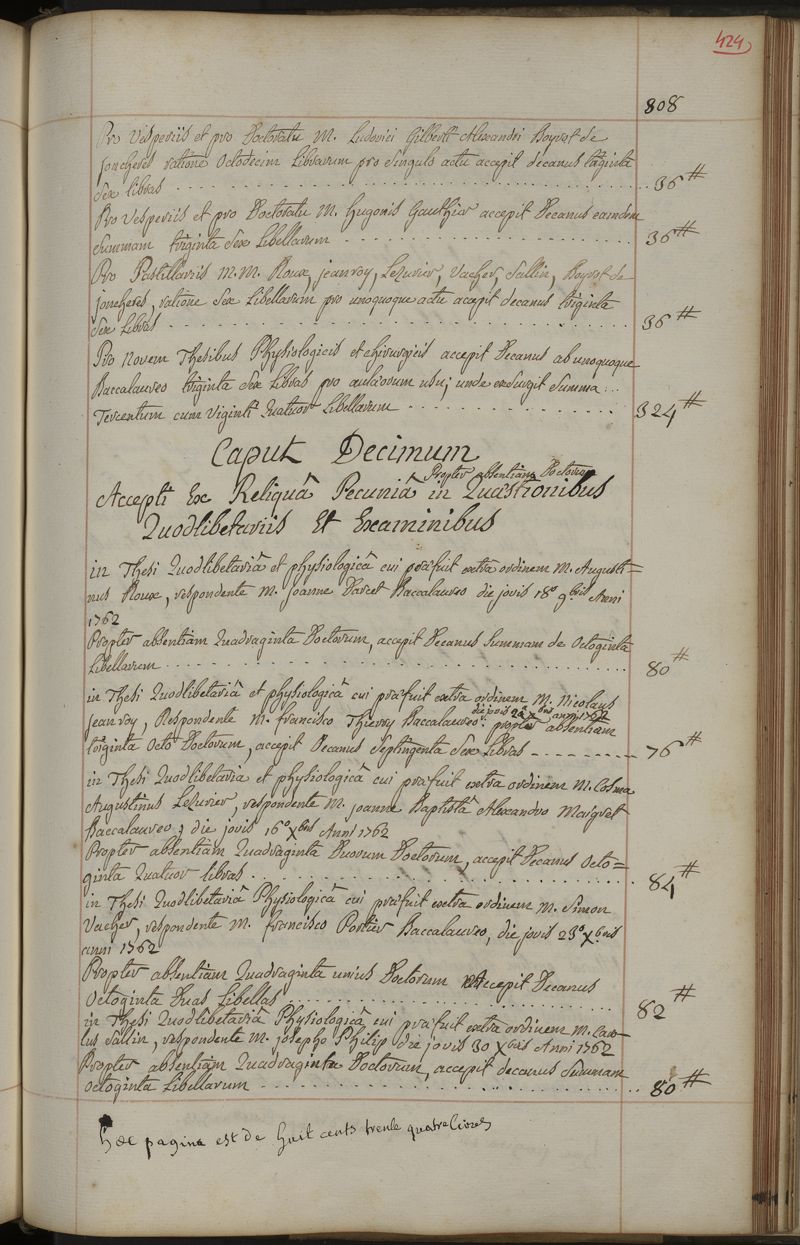 424
808
Pro Vesperiis et pro Doctoratu M. Ludovici Gilbert Alexandri Boyrot de
joncheres ratione Octodecim Librarum pro singulo actu accepit decanus triginta
sex libras 36 ₶
Pro Vesperiis et pro Doctoratu M. hugonis Gauthier accepit Decanus eamdem
Summam triginta Sex Libellarum 36 ₶
Pro Pastillariis M.M. Roux, jeanroy, Lezurier, Vacher, Sallin, Boyrot de
joncheres, ratione Sex Libellarum pro unoquoque actu accepit decanus triginta
Sex Libras 36 ₶
Pro Novem Thesibus Physiologicis et chirurgicis accepit Decanus ab unoquoque
Baccalaureo triginta Sex Libras pro aularum usu; unde exsurgit Summa
Tercentum cum Viginti Quatuor Libellarum 324 ₶
Caput Decimum
Propter absentiam Doctorum
Accepti Ex Reliquâ Pecuniâ in Quæstionibus
Quodlibetariis Et Examinibus
in Thesi Quodlibetariâ et physiologicâ cui præfuit extra ordinem M. Augusti=
nus Roux, respondente M. joanne Darcet Baccalaureo die jovis 18° 9bris Anni
1762
Propter absentiam Quadraginta Doctorum, accepit Decanus Summam de Octoginta
Libellarum 80 ₶
in Thesi Quodlibetariâ et physiologicâ cui præfuit extra ordinem M. Nicolaus
jeanroy, Respondente M. francisco Thierry Baccalaureo die jovis 2° xbris anni 1762 propter absentiam
triginta Octo Doctorum, accepit Decanus Septingenta Sex Libras 76 ₶
in Thesi Quodlibetariâ et physiologicâ cui præfuit extra ordinem M. Cosma
Augustinus Lezurier, respondente M. joanne Baptistâ Alexandro Maigret
Baccalaureo; die jovis 16° xbris Anni 1762
Propter absentiam Quadraginta Duorum Doctorum, accepit Decanus Octo=
ginta Quatuor libras 84 ₶
in Thesi Quodlibetariâ Physiologicâ cui præfuit extra ordinem M. Simon
Vacher, respondente M. francisco Portier Baccalaureo, die jovis 23° xbris
anni 1762
Propter absentiam Quadraginta unius Doctorum Accepit Decanus
Octoginta Duas Libellas 82 ₶
in Thesi Quodlibetariâ Physiologicâ cui præfuit extra ordinem M. Caro=
lus Sallin, respondente M. josepho Philip die jovis 30 xbris Anni 1762
Propter absentiam Quadraginta Doctorum, accepit decanus Summam
Octoginta Libellarum 80 ₶
hæc pagina est de huit cents trente quatre livres